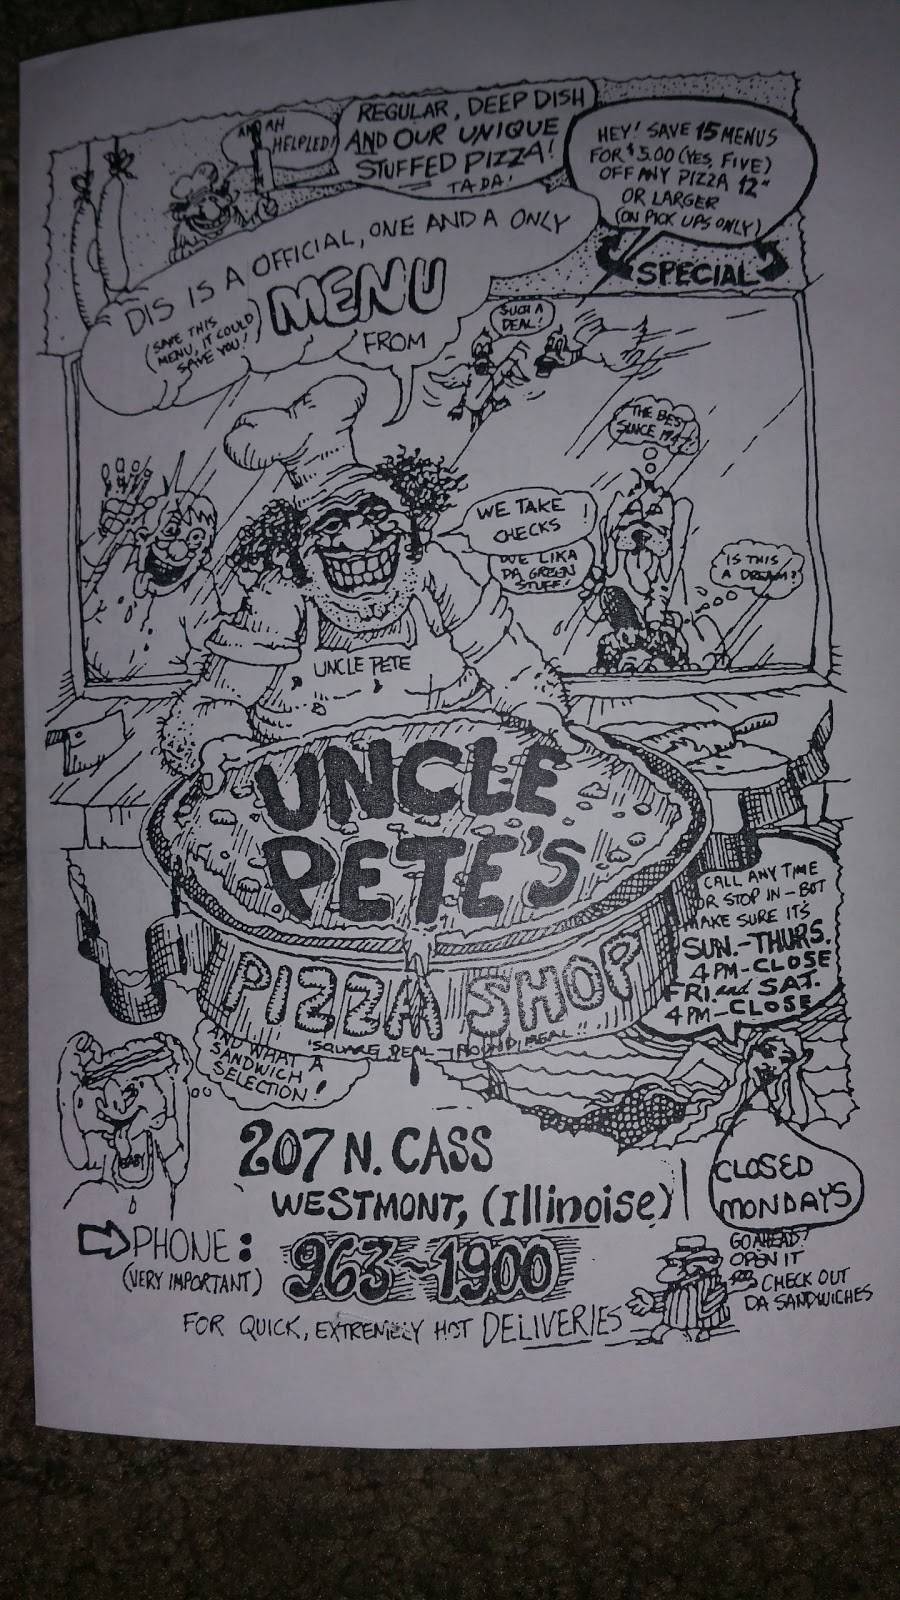 AND AH
HELPLED!
REGULAR, DEEP DISH
AND OUR UNIQUE
STUFFED PIZZA!
TA DA!
HEY! SAVE 15 MENUS
FOR $5.00 (YES, FIVE)
OFF ANY PIZZA 12"
OR LARGER
(ON PICK UPS ONLY)
SPECIAL
DIS IS A OFFICIAL, ONE AND A ONLY
(SAVE THIS
MENU, IT COULD
SAVE YOU!)
MENU
FROM
SUCH A
DEAL!
THE BEST
SINCE
WE TAKE
CHECKS!
WE LIKA
DA GREEN
STUFF!
IS THIS
A DREAM?
UNCLE PETE
UNCLE
PETE'S
PIZZA SHOP
"SQUARE DEAL - ROUND MEAL"!!
CALL ANY TIME
OR STOP IN - BUT
MAKE SURE IT'S
SUN.-THURS.
4 PM-CLOSE
FRI. and SAT.
4 PM-CLOSE
AND WHAT A
SANDWICH
SELECTION!
BABY
207 N. CASS
WESTMONT, (Illinoise)
CLOSED
MONDAYS
PHONE:
(VERY IMPORTANT)
963~1900
GO AHEAD!
OPEN IT
CHECK OUT
DA SANDWICHES
FOR QUICK, EXTREMELY HOT DELIVERIES